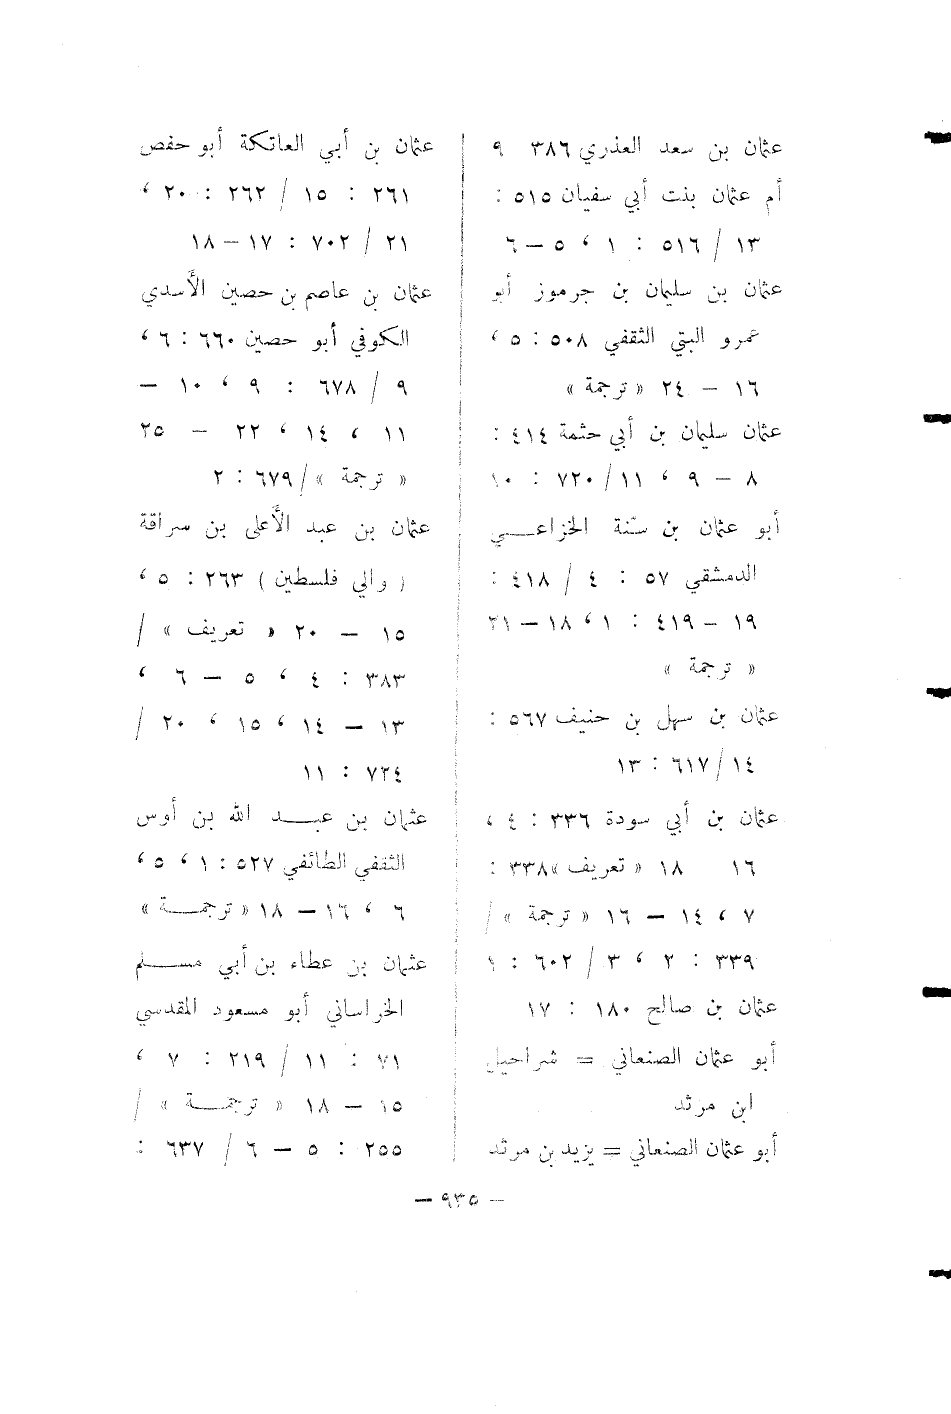 عثمان بن سعد العذري ٣٨٦ ٩
أم عثمان بنت أبي سفيان ٥١٥ :
١٣ / ٥١٦ : ١ ، ٥ – ٦
عثمان بن سليمان بن جرموز أبو
عمرو البتي الثقفي ٥٠٨ : ٥ ،
١٦ – ٢٤ « ترجمة »
عثمان سليمان بن أبي حثمة ٤١٤ :
٨ – ٩ ، ١١ / ٧٢٠ : ١٠
أبو عثمان بن سنّة الخزاعي
الدمشقي ٥٧ : ٤ / ٤١٨ :
١٩ – ٤١٩ : ١ ، ١٨ – ٢١
« ترجمة »
عثمان بن سهل بن حنيف ٥٦٧ :
١٤ / ٦١٧ : ١٣
عثمان بن أبي سودة ٣٣٦ : ٤ ،
١٦ ١٨ « تعريف » ٣٣٨ :
٧ ، ١٤ – ١٦ « ترجمة » /
٣٣٩ : ٢ ، ٣ / ٦٠٢ : ١
عثمان بن صالح ١٨٠ : ١٧
أبو عثمان الصنعاني = شراحيل
ابن مرثد
أبو عثمان الصنعاني = يزيد بن مرثد
عثمان بن أبي العاتكة أبو حفص
٢٦١ : ١٥ / ٢٦٢ : ٢٠ ،
٢١ / ٧٠٢ : ١٧ – ١٨
عثمان بن عاصم بن حصين الأسدي
الكوفي أبو حصين ٦٦٠ : ٦ ،
٩ / ٦٧٨ : ٩ ، ١٠ –
١١ ، ١٤ ، ٢٢ – ٢٥
« ترجمة » / ٦٧٩ : ٢
عثمان بن عبد الأعلى بن سراقة
( والي فلسطين ) ٢٦٣ : ٥ ،
١٥ – ٢٠ « تعريف » /
٣٨٣ : ٤ ، ٥ – ٦ ،
١٣ – ١٤ ، ١٥ ، ٢٠ /
٧٢٤ : ١١
عثمان بن عبد الله بن أوس
الثقفي الطائفي ٥٢٧ : ١ ، ٥ ،
٦ ، ١٦ – ١٨ « ترجمة »
عثمان بن عطاء بن أبي مسلم
الخراساني أبو مسعود المقدسي
٧١ : ١١ / ٢١٩ : ٧ ،
١٥ – ١٨ « ترجمة » /
٢٥٥ : ٥ – ٦ / ٦٣٧ :
– ٩٣٥ –